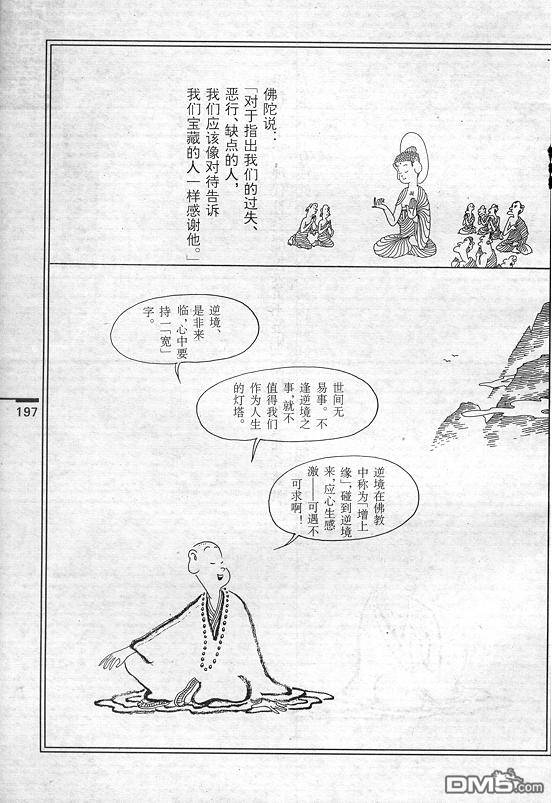 佛陀说：
「对于指出我们的过失、
恶行、缺点的人，
我们应该像对待告诉
我们宝藏的人一样感谢他。」
逆境、
是非来
临，心中要
持一「宽」
字。
世间无
易事。不
逢逆境之
事，就不
值得我们
作为人生
的灯塔。
逆境在佛教
中称为「增上
缘」，碰到逆境
来，应心生感
激——可遇不
可求啊！
197
DM5.com